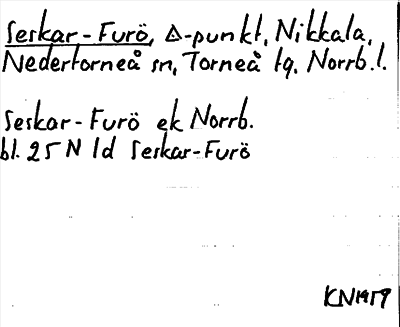 Seskar-Furö, △-punkt, Nikkala,
Nedertorneå sn, Torneå tg, Norrb.l.
Seskar-Furö ek Norrb.
bl. 25 N 1d Seskar-Furö
KN1959